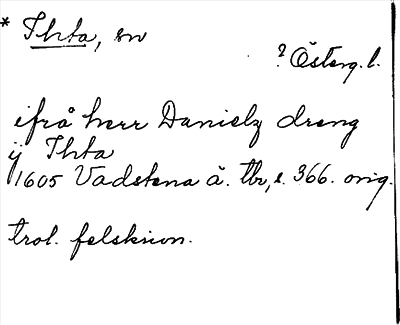 * Ihta, sn
? Österg. l.
ifrå herr Danielz dreng
ij Ihta
1605 Vadstena ä. tbr, s. 366. orig.
trol. felskrivn.